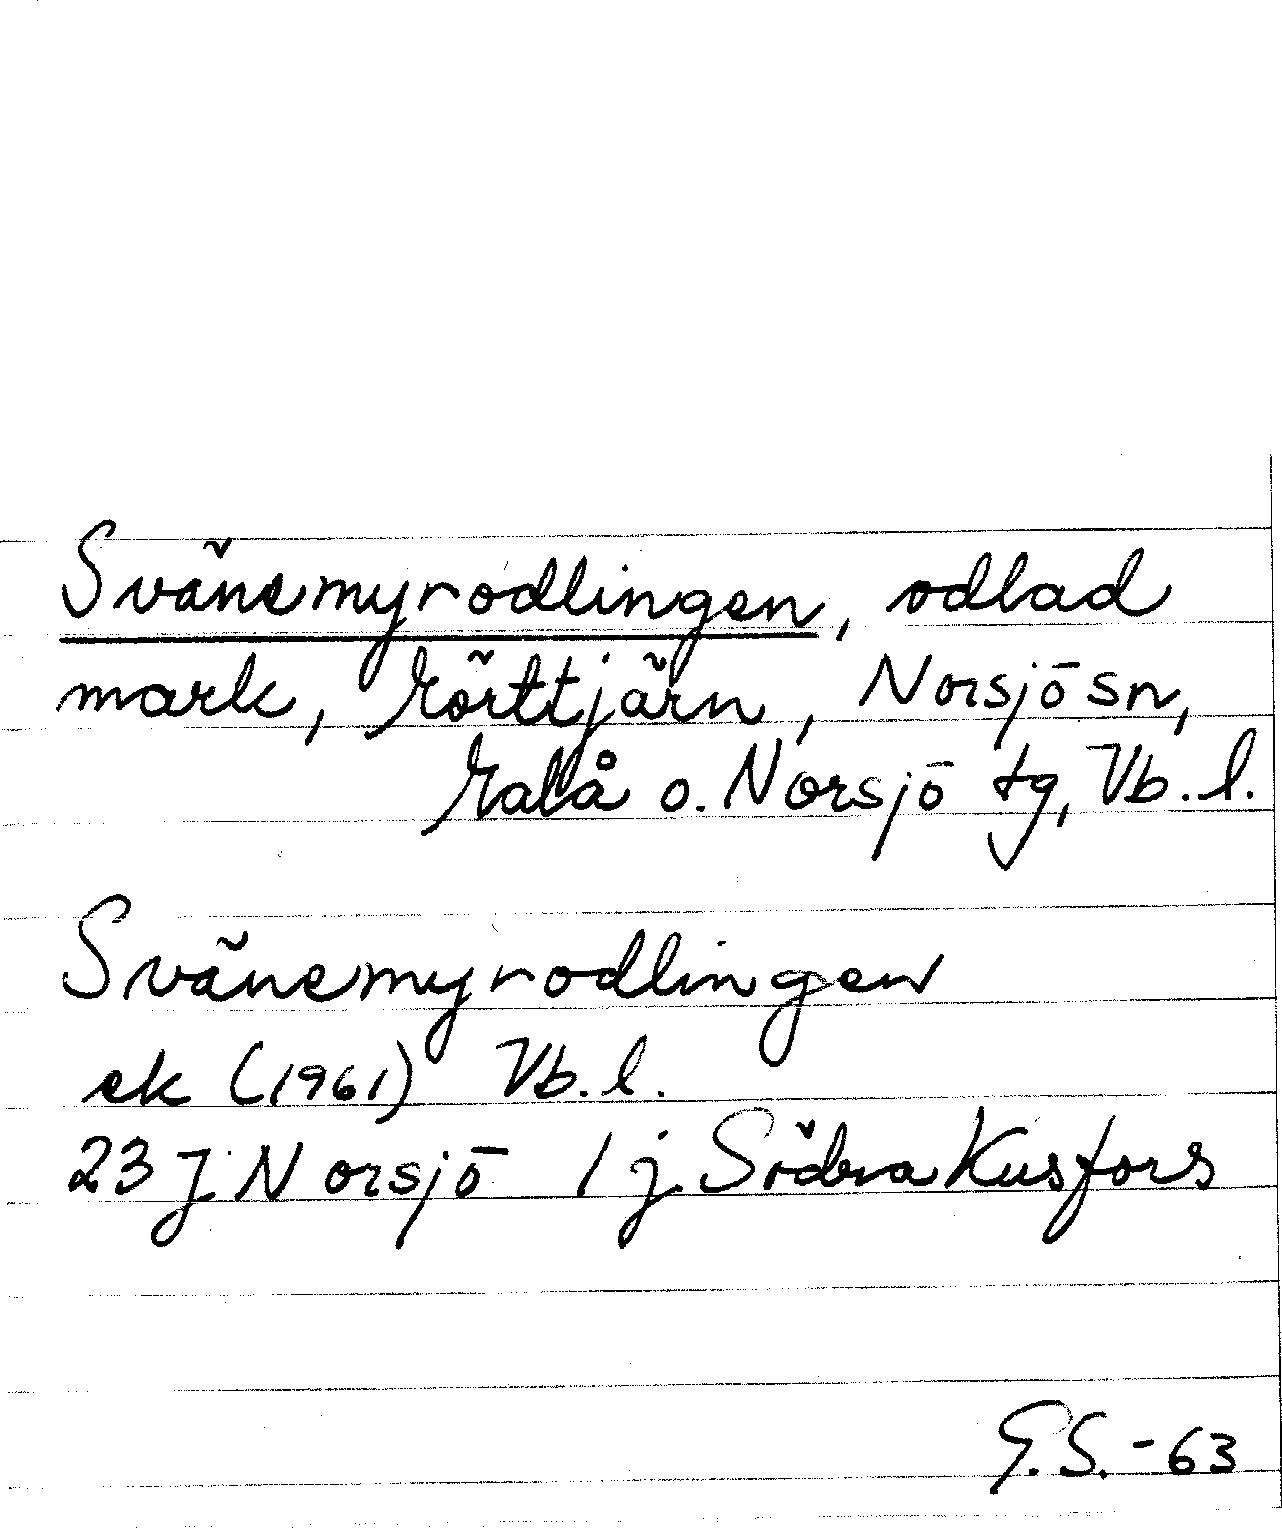 Svänsmyrodlingen, odlad
mark, Mörttjärn, Norsjö sn,
Malå o. Norsjö tg, Vb. l.
Svänsmyrodlingen
ek (1961) Vb. l.
23 J Norsjö 1 j Södra Kusfors
G.S. -63